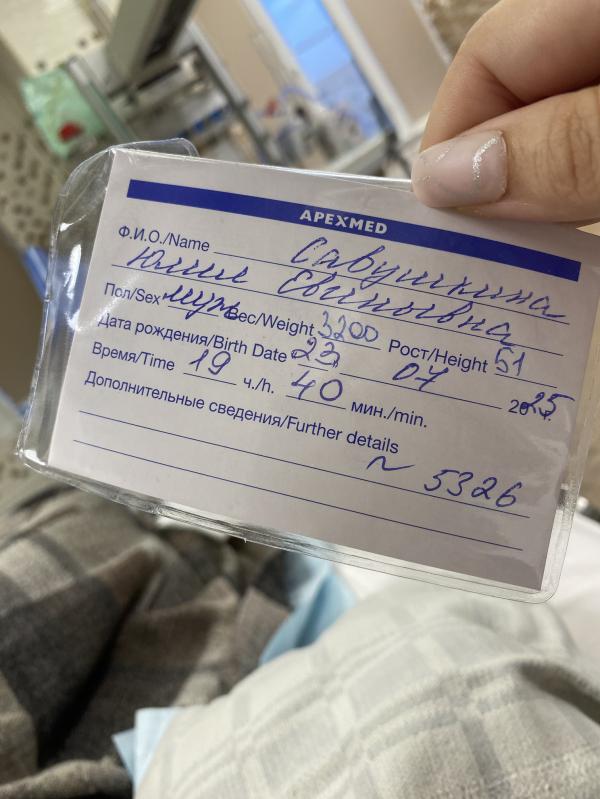 APEXMED
Ф.И.О./Name Савушкина
Юлия Евгеньевна
Пол/Sex муж Вес/Weight 3200 Рост/Height 51
Дата рождения/Birth Date 23 07 2025
Время/Time 19 ч./h. 40 мин./min.
Дополнительные сведения/Further details
~ 5326